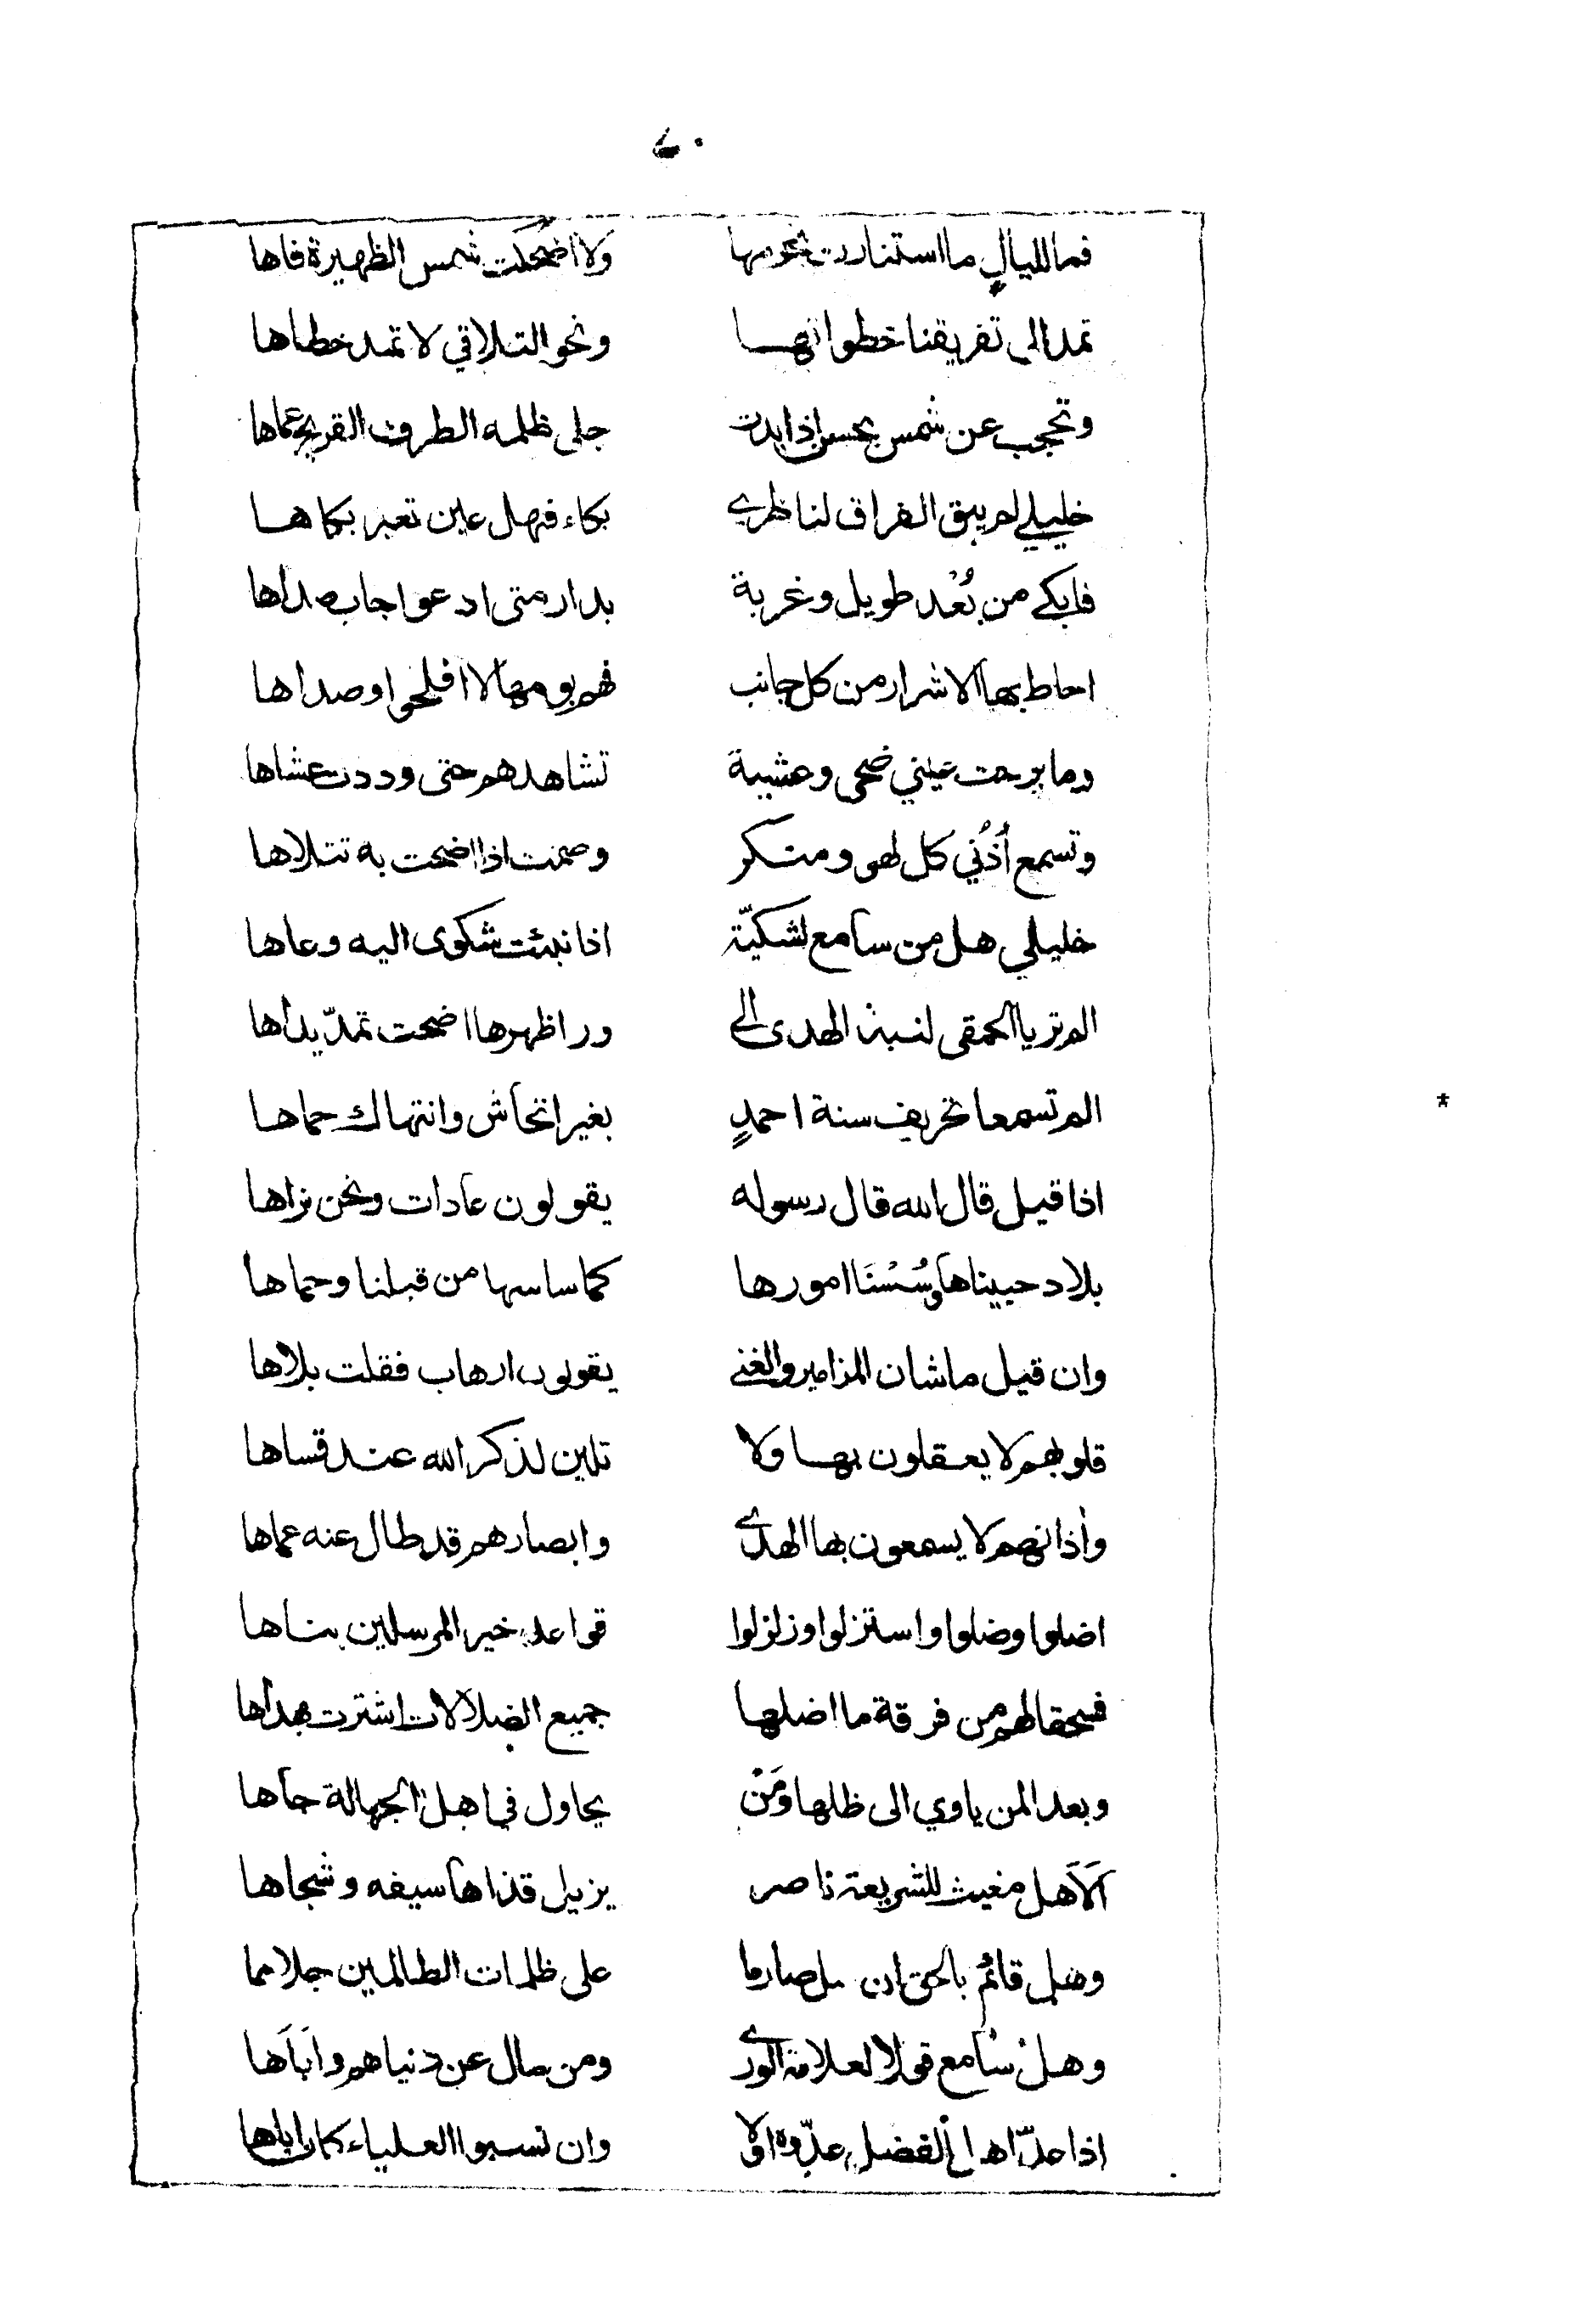 فما لليالٍ ما استنارت نجومها ولا اضحكت شمس الظهيرة فاها
تمد الى تفريقنا خطواتها ونحو التلاقي لا تمد خطاها
وتحجب عن شمس بحسن اذا بدت جلى ظلمه الطرف القريح عماها
خليلي لم يبق الفراق لناظري بكاء فهل عين تعير بكاها
فابكي من بُعْد طويل وغربة بدار متى ادعو اجاب صداها
احاط بها الاشرار من كل جانب فهم بومها لا افلحوا وصداها
وما برحت عيني ضحى وعشية تشاهدهم حتى وددت عشاها
وتسمع أُذُني كل لهو ومنكر وصمت اذا اضحت به تتلاها
خليلي هل من سامع لشكيّة اذا نبئت شكوى اليه وعاها
الم تريا الحمقى لنبذ الهدى الى ورا ظهرها اضحت تمدّ يداها
الم تسمعا تحريف سنة احمدٍ بغير اتحاش وانتهاك حماها
اذا قيل قال الله قال رسوله يقولون عادات ونحن نراها
بلاد حبيناها وسُسْنَا امورها كما ساسها من قبلنا وحماها
وان قيل ما شان المزامير والغنى يقولون ارهاب فقلت بلاها
قلوبهم لا يعقلون بها ولا تلين لذكر الله عند قساها
واذانهم لا يسمعون بها الهدى وابصارهم قد طال عنه عماها
اضلوا وضلوا واستزلوا وزلزلوا قواعد خير المرسلين بناها
فسحقا لهم من فرقة ما اضلها جميع الضلالات اشترت بهداها
وبعد المن ياوي الى ظلها ومَنْ يحاول في اهل الجهالة جاها
اَلَا هل مغيث للشريعة ناصر يزيل قذاها سيفه وشجاها
وهل قائم بالحق ان سل صارما على ظلمات الظالمين جلاها
وهل سامع قولا لعلامة الورى ومن مال عن دنياهم وأبَاَها
اذا عدّ اهل الفضل عدّوه اولا وان نسبوا العلياء كان اباها